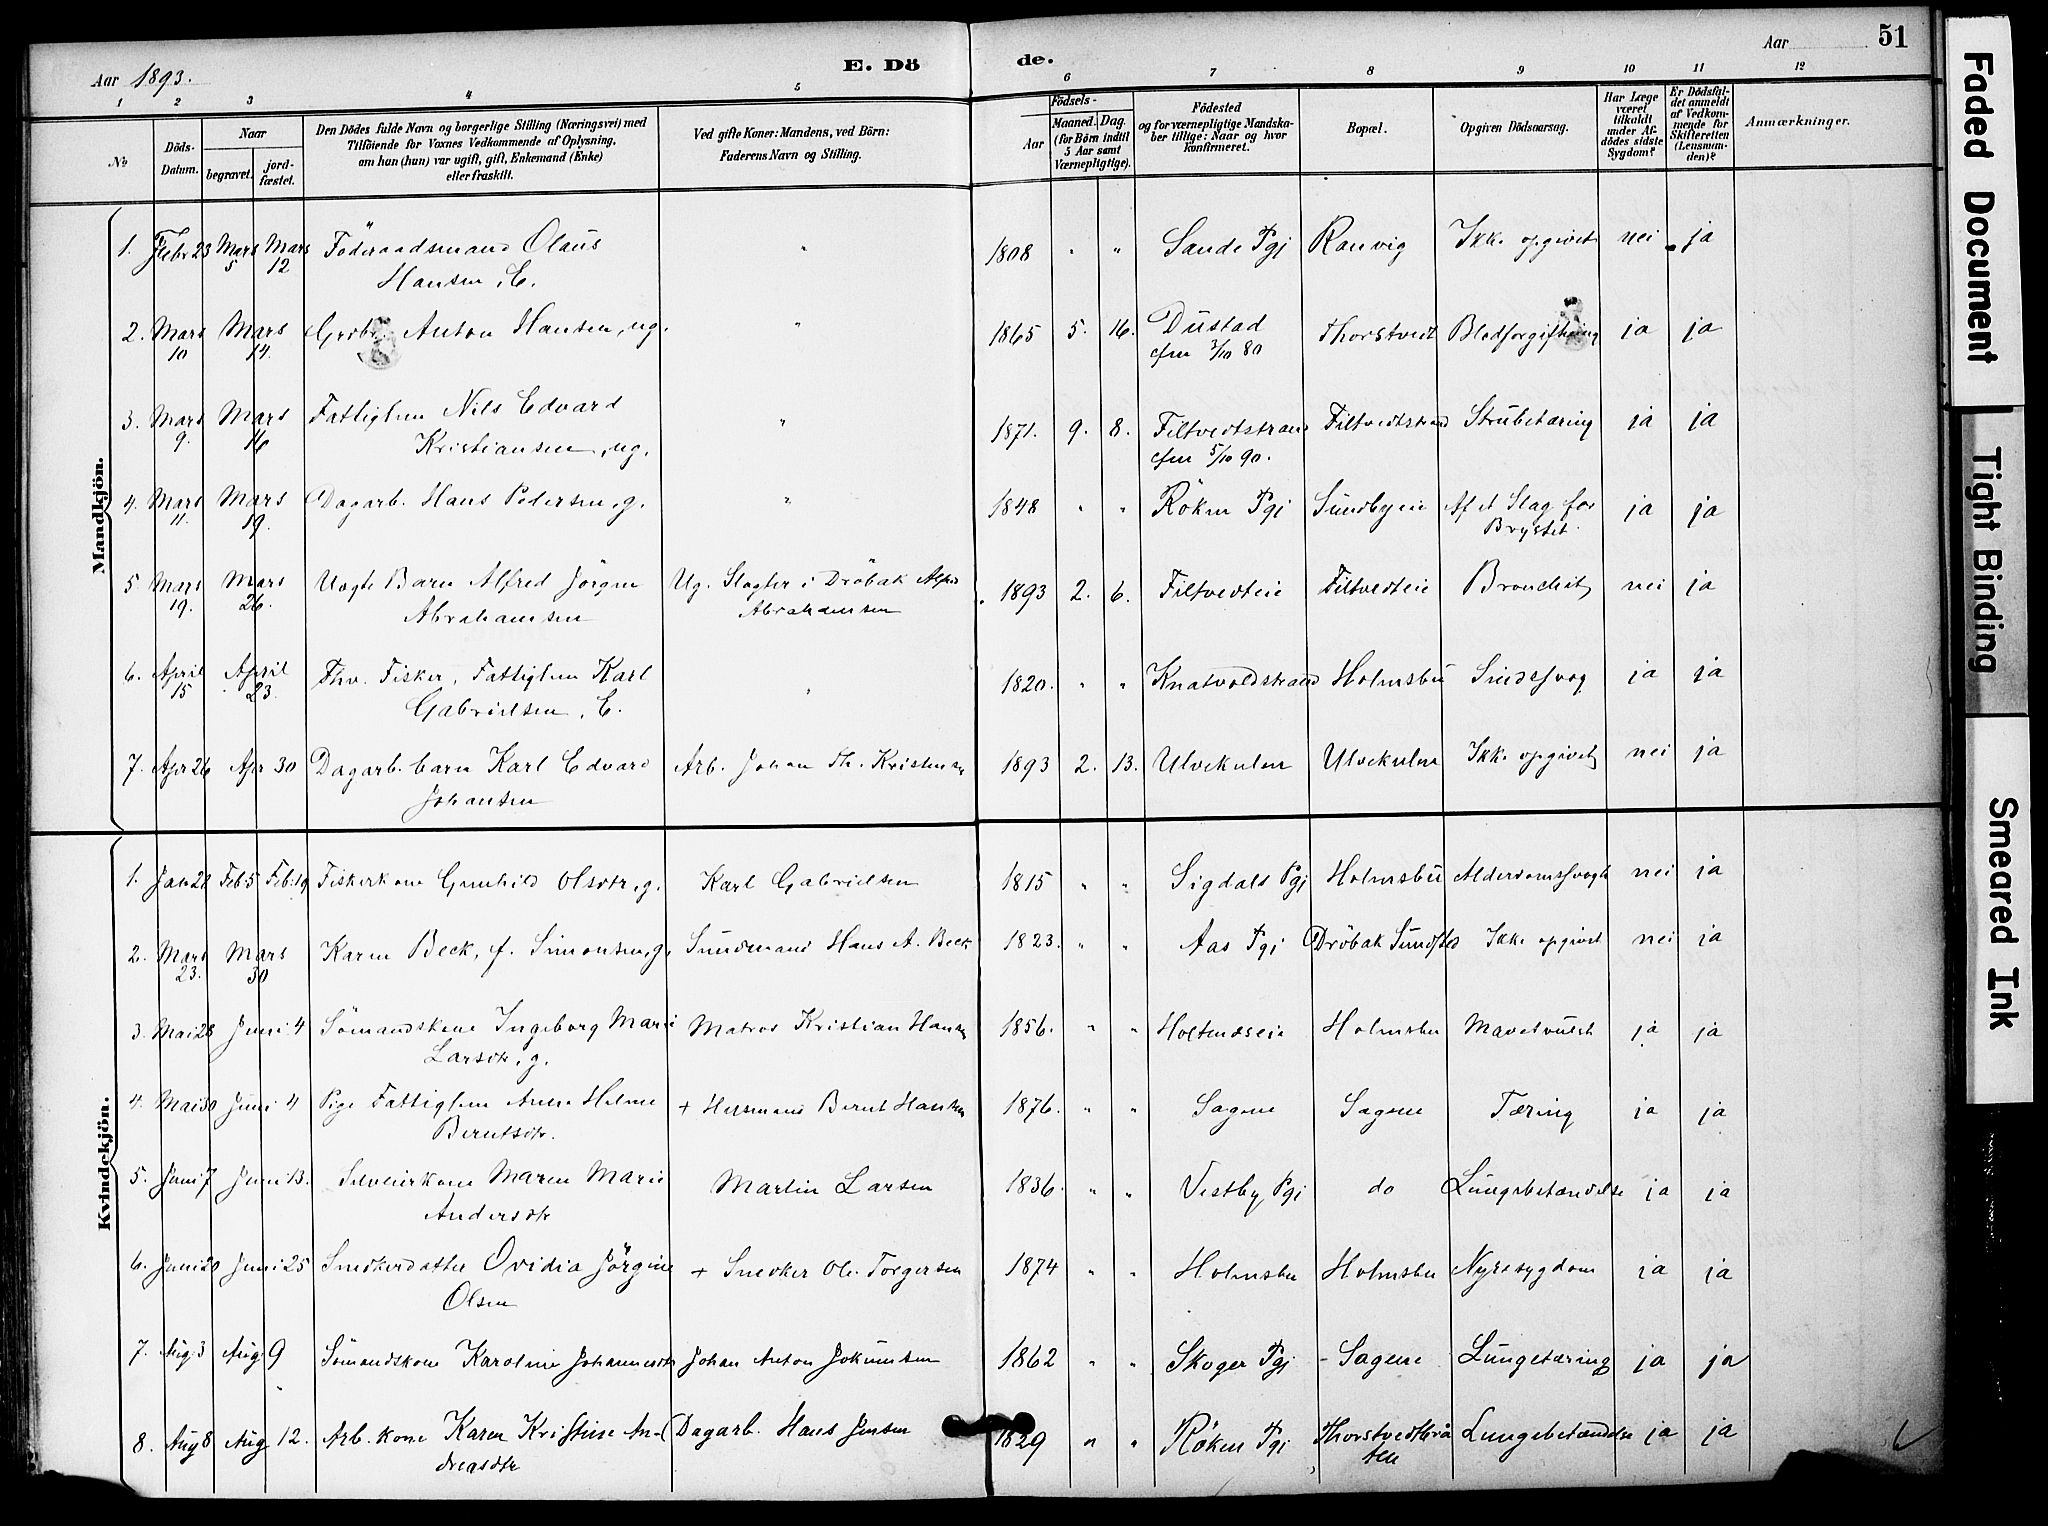 Aar 1893.
E. Döde.
Aar
51
1 2 3 4 5 6 7 8 9 10 11 12
No
Döds-Datum.
Naar
begravet.
jord-fæstet.
Den Dödes fulde Navn og borgerlige Stilling (Næringsvei) med
Tilföiende for Voxnes Vedkommende af Oplysning,
om han (hun) var ugift, gift, Enkemand (Enke)
eller fraskilt.
Ved gifte Koner: Mandens, ved Börn:
Faderens Navn og Stilling.
Födsels-
Aar
Maaned. Dag.
(for Börn indtil
5 Aar samt
Værnepligtige).
Födested
og for værnepligtige Mandska-
ber tillige: Naar og hvor
konfirmeret.
Bopæl.
Opgiven Dödsaarsag.
Har Læge
været
tilkaldt
under Af-
dödes sidste
Sygdom?
Er Dödsfal-
det anmeldt
af Vedkom-
mende for
Skifteretten
(Lensman-
den)?
Anmærkninger.
Mandkjön.
1. Febr 23 Mars 5 Mars 12 Föderaadsmand Olaus " 1808 " " Sande Pgj Ranvig Ikke opgivet nei ja
Hansen, E.
2. Mars 10 Mars 14. Anton Hansen, ug. " 1865 5. 16. Dustad Thorstvedt Blodforgiftning ja ja
cfm 3/10 80
3. Mars 9. Mars 16 Fattiglem Nils Edvard " 1871. 9. 8. Filtvedtstrand Filtvedtstrand Strubetæring ja ja
Kristiansen, ug. cfm 5/10 90.
4. Mars 11. Mars 19. Dagarb. Hans Pedersen, g. " 1848 " " Röken Pgj Sundbyeie Af et Slag for ja ja
Brystet.
5 Mars 19. Mars 26. Uægte Barn Alfred Jörgen Ug. Slagter i Dröbak Alfred 1893 2. 6. Filtvedteie Filtvedteie Bronchit nei ja
Abrahamsen Abrahamsen
6. April 15 April 23. Fhv. Fisker, Fattiglem Karl " 1820. " " Knatvoldstrand Holmsbu Sindssvag ja ja
Gabrielsen, E.
7. Apr 26 Apr 30 Dagarb. barn Karl Edvard Arb. Johan Th. Kristensen 1893 2. 13. Ulvekulen Ulvekulen Ikke opgivet nei ja
Johansen
Kvindekjön.
1. Jan 28 Feb 5 Feb. 19 Fiskerkone Gunhild Olsdtr, g. Karl Gabrielsen 1815 " " Sigdals Pgj Holmsbu Alderdomssvaghed nei ja
2. Mars 23. Mars 30 Karen Beck, f. Simonsen, g. Sundmand Hans A. Beck 1823. " " Aas Pgj Dröbak Sundsted Ikke opgivet nei ja
3. Mai 28 Juni 4 Sömandskone Ingeborg Marie Matros Kristian Hansen 1856. " " Holtendseie Holmsbu Mavetvulst ja ja
Larsdtr, g.
4. Mai 30 Juni 4 Pige Fattiglem Anne Helene + Husmand Bernt Hansen 1876. " " Sagene Sagene Tæring ja ja
Berntsdtr.
5. Juni 7 Juni 13. Selveierkone Maren Marie Martin Larsen 1836. " " Vestby Pgj do Lungebetændelse ja ja
Andersdtr
6. Juni 20 Juni 25 Snedkerdatter Ovidia Jörgine + Snedker Ole Torgersen 1874 " " Holmsbu Holmsbu Nyresygdom ja ja
Olsen
7. Aug. 3 Aug 9 Sömandskone Karoline Johannesdtr Johan Anton Jokumsen 1862 " " Skoger Pgj - Sagene Lungetæring ja ja
8. Aug 8 Aug 12. Arb. kone Karen Kristine An- Dagarb. Hans Jensen 1829 " " Röken Pgj Thorstvedtbrå Lungebetændelse ja ja
dreasdtr ten
Faded Document
Tight Binding
Smeared Ink